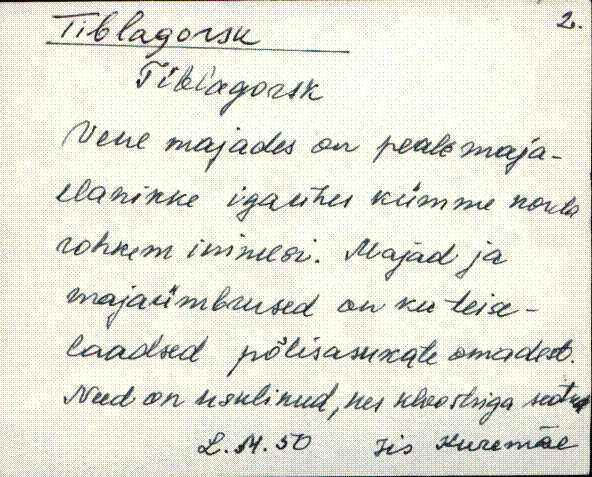 Tiblagorsk 2.
Tiblagorsk
Vene majades on peale maja-
elanikke igaühes kümme korda
rohkem inimesi. Majad ja
majaümbrused on ka teise-
laadsed põlisasukate omadest.
Need on usulinud, kes kloostriga seotud
L. M. 50 Iis Kuremäe